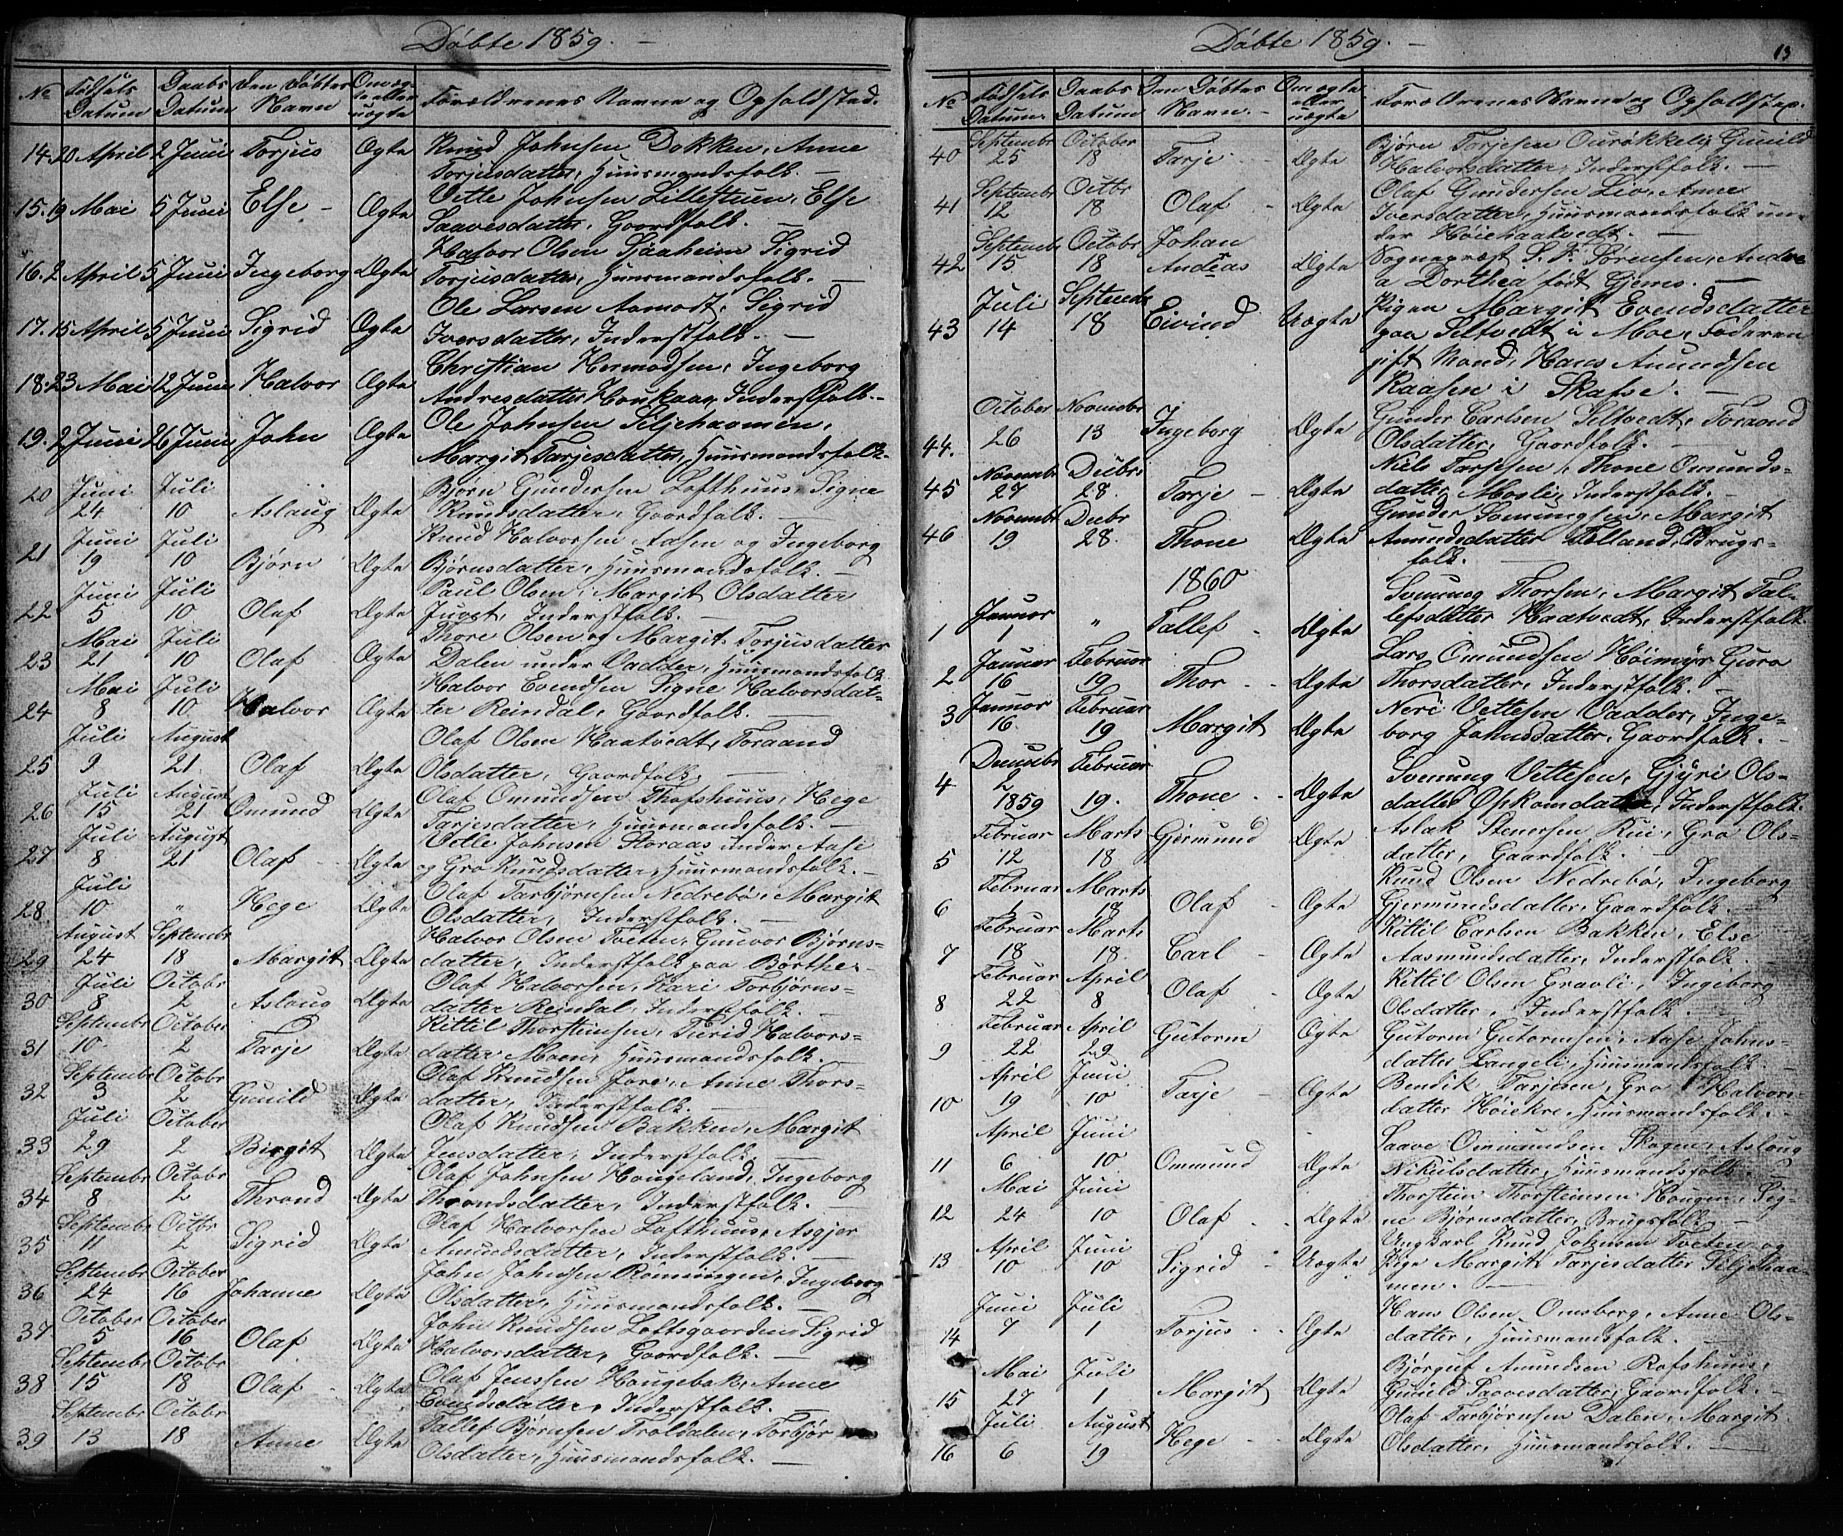 Döbte 1859.
No Födsels Datum Daabs Datum Den Döbtes Navn Om ægte eller uægte Forældrenes Navne og Opholdsted.
14. 20 April 2 Juni Torjus Ægte Knud Johnsen Dokken, Anne
Torjusdatter, Huusmandsfolk.
15. 19 Mai 5 Juni Else Ægte Vetle Johnsen Lillestuen, Else
Saavesdatter, Gaardfolk.
16. 2 April 5 Juni Ingeborg Ægte Halvor Olsen Sjaaheim Sigrid
Torjusdatter, Huusmandsfolk.
17. 15 April 5 Juni Sigrid Ægte Ole Larsen Aamodt, Sigrid
Iversdatter, Inderstfolk.
18. 23 Mai 12 Juni Halvor Ægte Christian Hermodsen, Ingeborg
Andresdatter Houkaas, Inderstfolk.
19. 2 Juni 26 Juni John Ægte Ole Johnsen Siljehaamen,
Margit Tarjesdatter, Huusmandsfolk.
20 Juni 24 Juli 10 Aslaug Ægte Bjørn Gundersen Lofthuus, Signe
Knudsdatter, Gaardfolk.
21 Juni 19 Juli 10 Bjørn Ægte Knud Halvorsen Aasen og Ingeborg
Bjørnsdatter, Huusmandsfolk.
22 Juni 5 Juli 10 Olaf Ægte Paul Olsen, Margit Olsdatter
Juvet, Inderstfolk.
23 Mai 21 Juli 10 Olaf Ægte Thore Olsen og Margit Torjusdatter
Dalen under Vadder, Huusmandsfolk
24 Mai 8 Juli 10 Halvor Ægte Halvor Evendsen Signe Halvorsdat-
ter Reindal, Gaardfolk.
25 Juli 9 August 21. Olaf Ægte Olaf Olsen Haatvedt, Toraand
Olsdatter, Gaardfolk.
26 Juli 15 August 21 Omund Ægte Olaf Omundsen Thofshuus, Hege
Tarjesdatter, Huusmandsfolk.
27 Juli 8 August 21 Olaf Ægte Vetle Johnsen Storaas under Aase
og Gro Knudsdatter, Huusmandsfolk.
28. Juli 10 " Hege Ægte Olaf Tarbjørnsen Nedrebø, Margit
Olsdatter, Inderstfolk.
29 August 24 Septembr 18 Margit Ægte Halvor Olsen Tveten, Gunvor Bjørns-
datter, Inderstfolk paa Børthe.
30 Juli 8 October 2 Aslaug Ægte Olaf Halvorsen, Kari Torbjørns-
datter Reindal, Inderstfolk.
31 Septembr 10 October 2 Tarje Ægte Kittil Thorsteinsen, Turid Halvors-
datter Moen, Huusmandsfolk.
32 Septembr 3 Octobr 2 Gunild Ægte Olaf Knudsen Jore, Anne Thors-
datter, Inderstfolk.
33 Juli 29 October 2 Birgit Ægte Olaf Knudsen Bakken, Margit
Jensdatter, Inderstfolk.
34 Septembr 8 October 2 Thrond Ægte Olaf Johnsen Hougeland, Ingeborg
Throndsdatter, Inderstfolk.
35 Septembr 11 Octbr 2 Sigrid Ægte Olaf Halvorsen Lofthuus, Asgjer
Amundsdatter, Inderstfolk.
36 Septembr 24 October 16 Johanne Ægte John Johnsen Rønningen, Ingeborg
Olsdatter, Huusmandsfolk.
37 October 5 October 16 Olaf Ægte John Knudsen Loftsgaarden Sigrid
Halvorsdatter, Gaardfolk.
38 Septembr 15 October 18 Olaf Ægte Olaf Jenssen Hougebak, Anne
Evendsdatter, Inderstfolk.
39 Septembr 13 October 18 Anne Ægte Tallef Bjørnsen Troldalen, Torbjør
Olsdatter, Huusmandsfolk.
Döbte 1859.
13
No Födsels Datum. Daabs Datum Den Döbtes Navn. Om ægte eller uægte Forældrenes Navne og Opholdsted.
40 Septembr 25 October 18 Tarje Ægte Bjørn Torjesen Gunild
Halvorsdatter, Inderstfolk.
41 Septembr 12 Octbr 18 Olaf Ægte Olaf Gundersen Lio, Anne
Iversdatter, Huusmandsfolk un-
der Høiehaatvedt.
42 Septembr 15 Octobr 18 Johan Andreas Ægte Sognepræst S. Sørensen, Andre
a Dorthea født Gjems.
43 Juli 14 Septembr 18 Eivind Uægte Pigen Margit Evendsdatter
paa Seltvedt i Moe, Faderen
gift Mand, Hans Amundsen
Raasen i Skafse.
44. October 26 Novembr 13 Ingeborg Ægte Gunder Carlsen Seltvedt, Toraand
Olsdatter, Gaardfolk.
45 Novembr 27 Decbr. 28. Tarje Ægte Niels Tarjesen, Thone Omunds-
datter Mosli, Inderstfolk.
46 Novembr 19 Decbr 28. Thone Ægte Gunder Svenungsen, Margit
Amundsdatter Felland, Brugs-
folk.
1860
1 Januar 1 " Tallef Ægte Svenung Thorsen, Margit Tal-
lefsdatter Haatvedt, Inderstfolk.
2 Januar 16 Februar 19 Thor Ægte Lars Omundsen Høimyr Guro
Thorsdatter, Inderstfolk.
3 Januar 16. Februar 19 Margit Ægte Neri Vetlesen Vadder, Inge-
borg Johnsdatter, Gaardfolk.
4 Decembr 2 1859 Februar 19. Thone Ægte Svenung Vetlesen, Gjyri Ols-
datter, Inderstfolk.
5 Februar 12 Marts 18 Gjermund Ægte Aslak Stenersen Rui, Gro Ols-
datter, Gaardfolk.
6 Februar 1 Marts 18 Olaf Ægte Knud Olsen Nedrebø, Ingeborg
Gjermundsdatter, Gaardfolk.
7 Februar 18 Marts 18. Carl Ægte Kittil Carlsen Bakken, Else
Aasmundsdatter, Inderstfolk.
8 Februar 22 April 8 Olaf Ægte Kittil Olsen Gravli, Ingeborg
Olsdatter, Inderstfolk.
9 Februar 22 April 29 Gutorm Ægte Gutorm Gutormsen, Aase Johns-
datter Langeli, Huusmandsfolk.
10 April 19 Juni 10 Tarje Ægte Bendik Tarjesen, Gro Halvors-
datter Høiekre, Huusmandsfolk.
11 April 6 Juni 10 Ommund Ægte Saave Ommundsen Skogen, Aslaug
Nikulsdatter, Huusmandsfolk.
12 Mai 24 Juni 10 Olaf Ægte Thorstein Thorsteinsen Hougen, Sig-
ne Bjørnsdatter, Brugsfolk.
13 April 10 Juni 10 Sigrid Uægte Ungkarl Knud Johnsen Tveten og
Pige Margit Tarjesdatter Siljehaa-
men.
14 Juni 7 Juli 1 Torjus Ægte Hans Olsen Omsberg, Anne Ols-
datter, Huusmandsfolk.
15 Mai 27 Juli 1 Margit Ægte Bjørguf Amundsen Rofshuus,
Gunild Saavesdatter, Gaardfolk.
16 Juli 6 August 19 Hege Ægte Olaf Tarbjørnsen Dalen, Margit
Olsdatter, Huusmandsfolk.